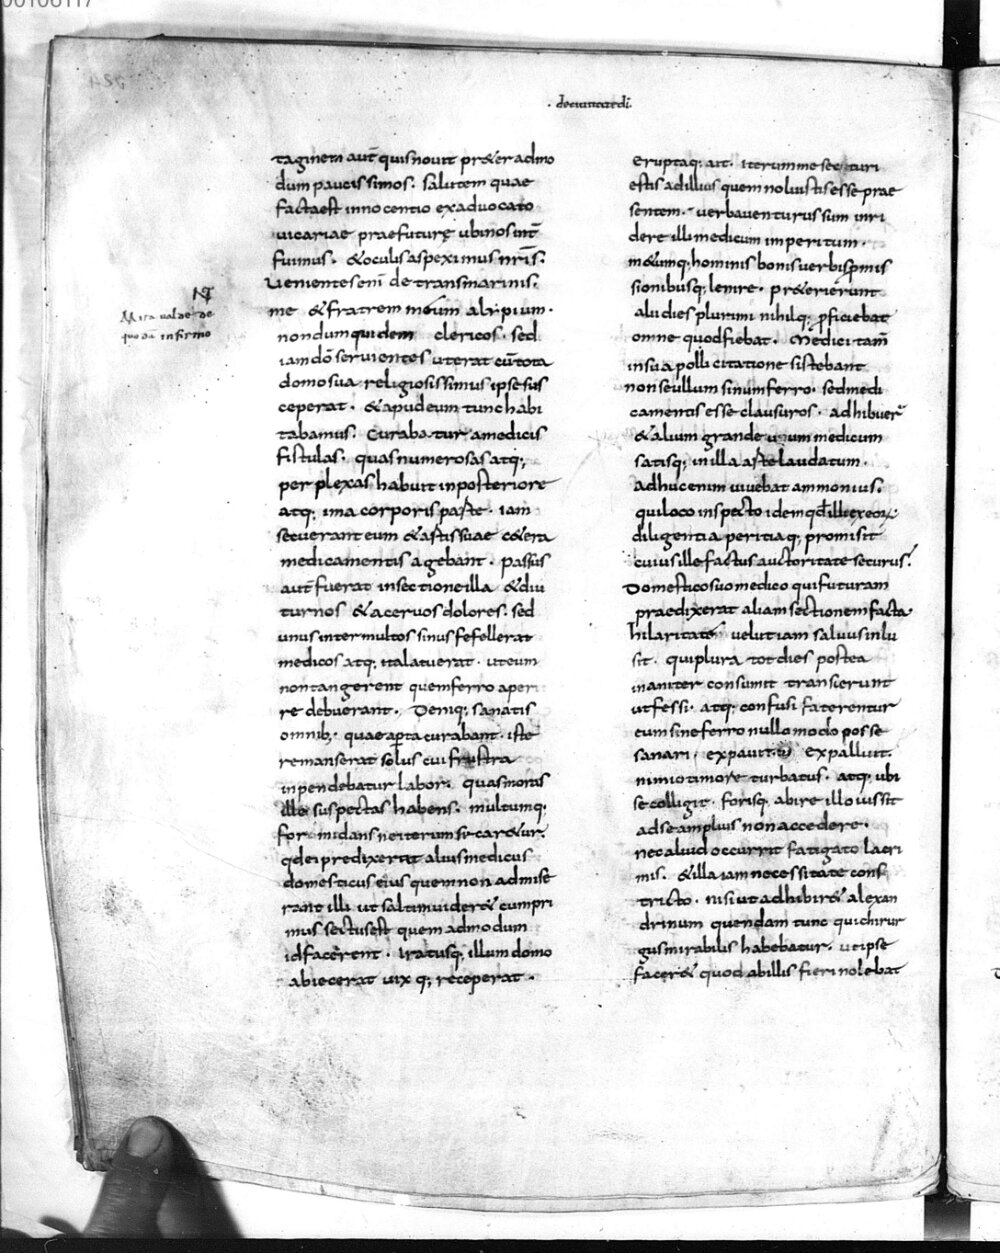 00106117
· deciuitatedi
taginem aut̄ quis nouit pr&er admo
dum paucissimos. Salutem quae
facta est innocentio exaduocato
uicariae praefuturę ubi nos int̄
fuimus. &oculis aspeximus nr̄is.
Uenientes eni de transmarinis.
me &fratrem meum alypium.
nondum quidem clericos. sed
iam dō seruientes ut erat cū tota
domo sua religiosissimus ipse sus
ceperat. &apud eum tunc habi
tabamus. Curabatur amedicis
fistulas. quas numerosas atq;
perplexas habuit inposteriore
atq; ima corporis parte. iam
secuerant eum &artis suae c&era
medicamentis agebant. passus
aut̄ fuerat insectione illa &diu
turnos &aceruos dolores. sed
unus inter multos sinus fefellerat
medicos atq; ita latuerat. ut eum
non tangerent quem ferro aperi
re debuerant. Deniq; sanatis
omnib; quae aperta curabant. iste
remanserat solus cui frustra
inpendebatur labor. quas moras
ille suspectas habens. multumq;
formidans ne iterum secar&ur.
qđ ei predixerat alius medicus
domesticus eius quem non admise
rant illi ut saltim uider& cum pri
mus sectus est quem admodum
id facerent. Iratusq; illum domo
abiecerat uix q; receperat.
NT
Mira ualde de
quodā infirmo
eruptaq; ait. iterum me secaturi
estis ad illius quem noluistis esse prae
sentem. uerba uenturus sum inri
dere illi medicum imperitum.
m&umq; hominis bonis uerbis pmis
sionibusq; lenire. pr&erierunt
alii dies plurimi nihilq; pficiebat
omne quod fiebat. Medici tam̄
insua pollicitatione sistebant
non se ullum sinum ferro. sed medi
camentis esse clausuros. adhibuer̄
&alium grande uum medicum
satisq; in illa arte laudatum.
adhuc enim uiuebat ammonius.
qui loco inspecto idem qđ illi exeor;
diligentia peritiaq; promisit
cuius ille factus auctoritate securus.
Domestico suo medico qui futuram
praedixerat aliam sectionem facta
hilaritate uelut iam saluus inlu
sit. quid plura tot dies postea
inaniter consumti transierunt
ut fessi. atq; confusi faterentur
eum sine ferro nullo modo posse
sanari. expauit. &expalluit.
nimio timore turbatus. atq; ubi
se colligit. forisq; abire illo iussit
ad se amplius non accedere.
nec aliud occurrit fatigato lacri
mis. &illa iam necessitate cons
tricto. nisi ut adhiber& alexan
drinum quendam tunc qui chirur
gus mirabilis habebatur. ut ipse
facer& quod ab illis fieri nolebat